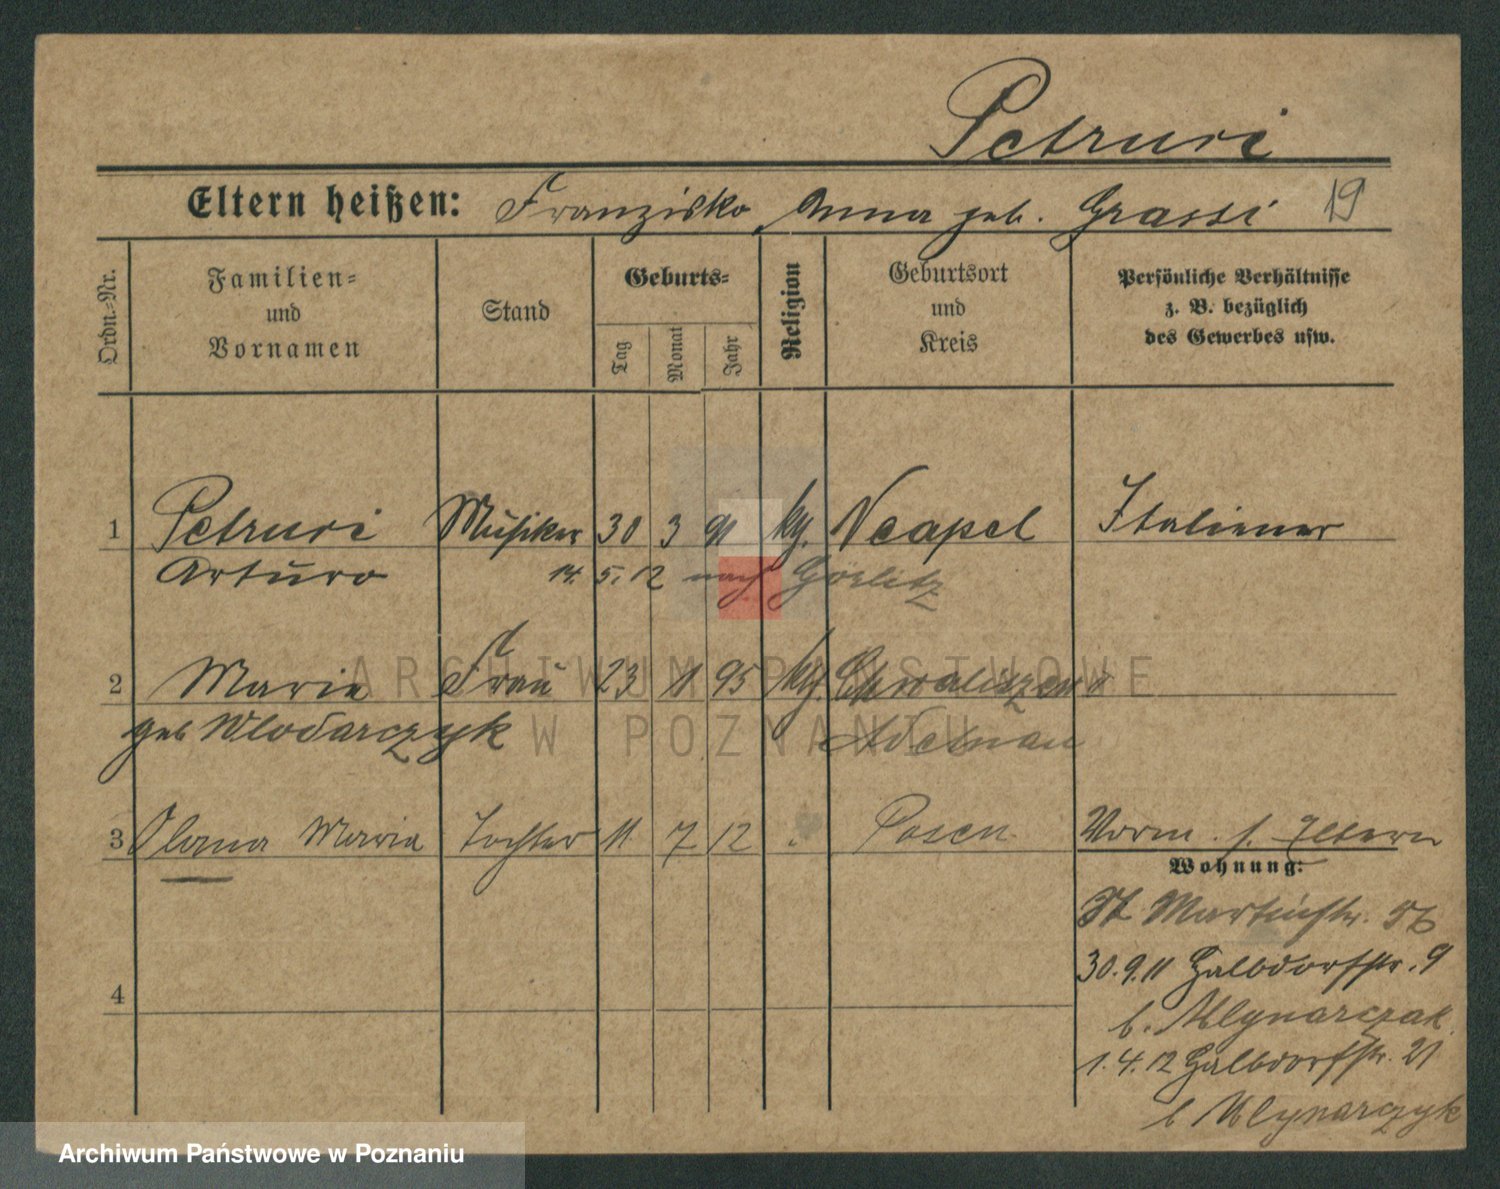 Petruri
Eltern heißen: Franzisko, Anna geb. Grassi 19
Ordn.-Nr.
Familien-
und
Vornamen
Stand
Geburts-
Tag
Monat
Jahr
Religion
Geburtsort
und
Kreis
Persönliche Verhältnisse
z. B. bezüglich
des Gewerbes usw.
1 Petruri Musiker 30 3 91 kg. Neapel Italiener
Arturo 14. 5. 12 nach Görlitz
2 Maria Frau 23 11 95 kg.
geb Wlodarczyk Adelnau
3 Maria Tochter 11 7 12 Posen Vorm. s. Eltern
Wohnung:
St Martinstr. 56
30.9.11 Halbdorfstr. 9
b. Mlynarczak
1.4.12 Halbdorfstr. 21
b Mlynarczyk
4
ARCHIWUM PAŃSTWOWE
W POZNANIU
Archiwum Państwowe w Poznaniu